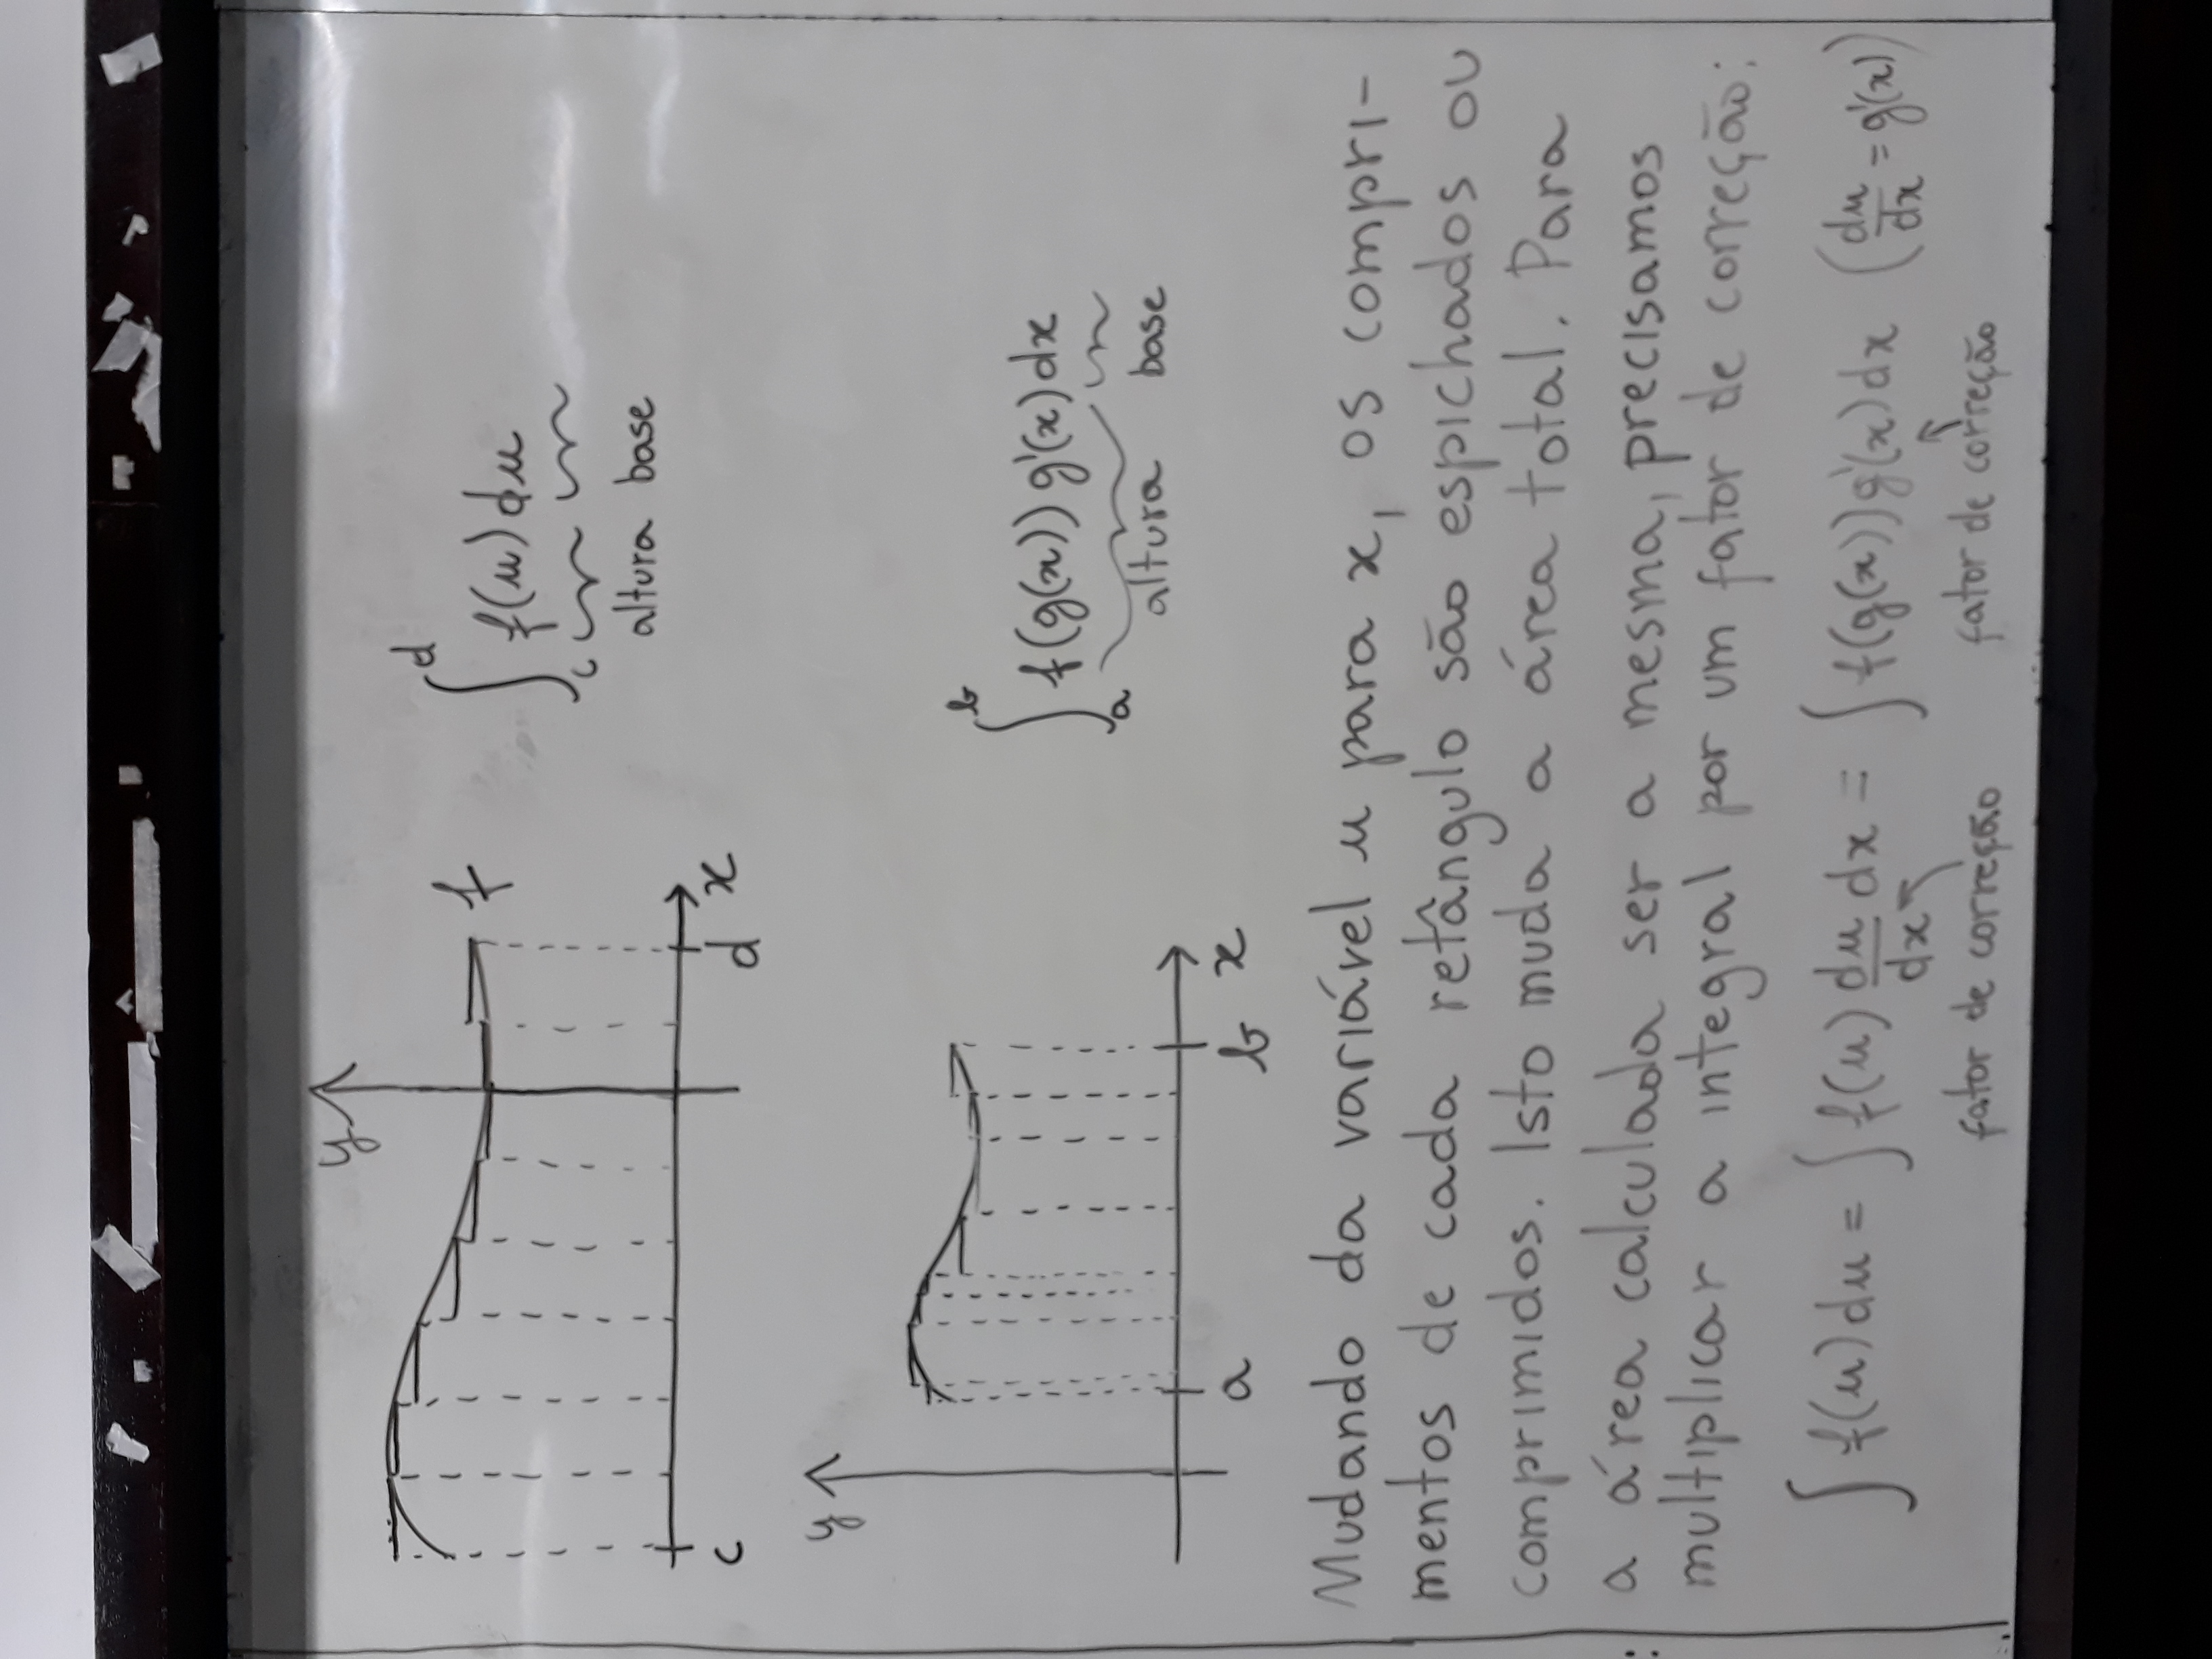 y
f
c
d
x
∫_c^d f(u) du
altura base
y
a
b
x
∫_a^b f(g(x)) g'(x) dx
altura base
Mudando da variável u para x, os compri-
mentos de cada retângulo são espichados ou
comprimidos. Isto muda a área total. Para
a área calculada ser a mesma, precisamos
multiplicar a integral por um fator de correção:
∫ f(u) du = ∫ f(u) du/dx dx = ∫ f(g(x)) g'(x) dx (du/dx = g'(x))
fator de correção fator de correção